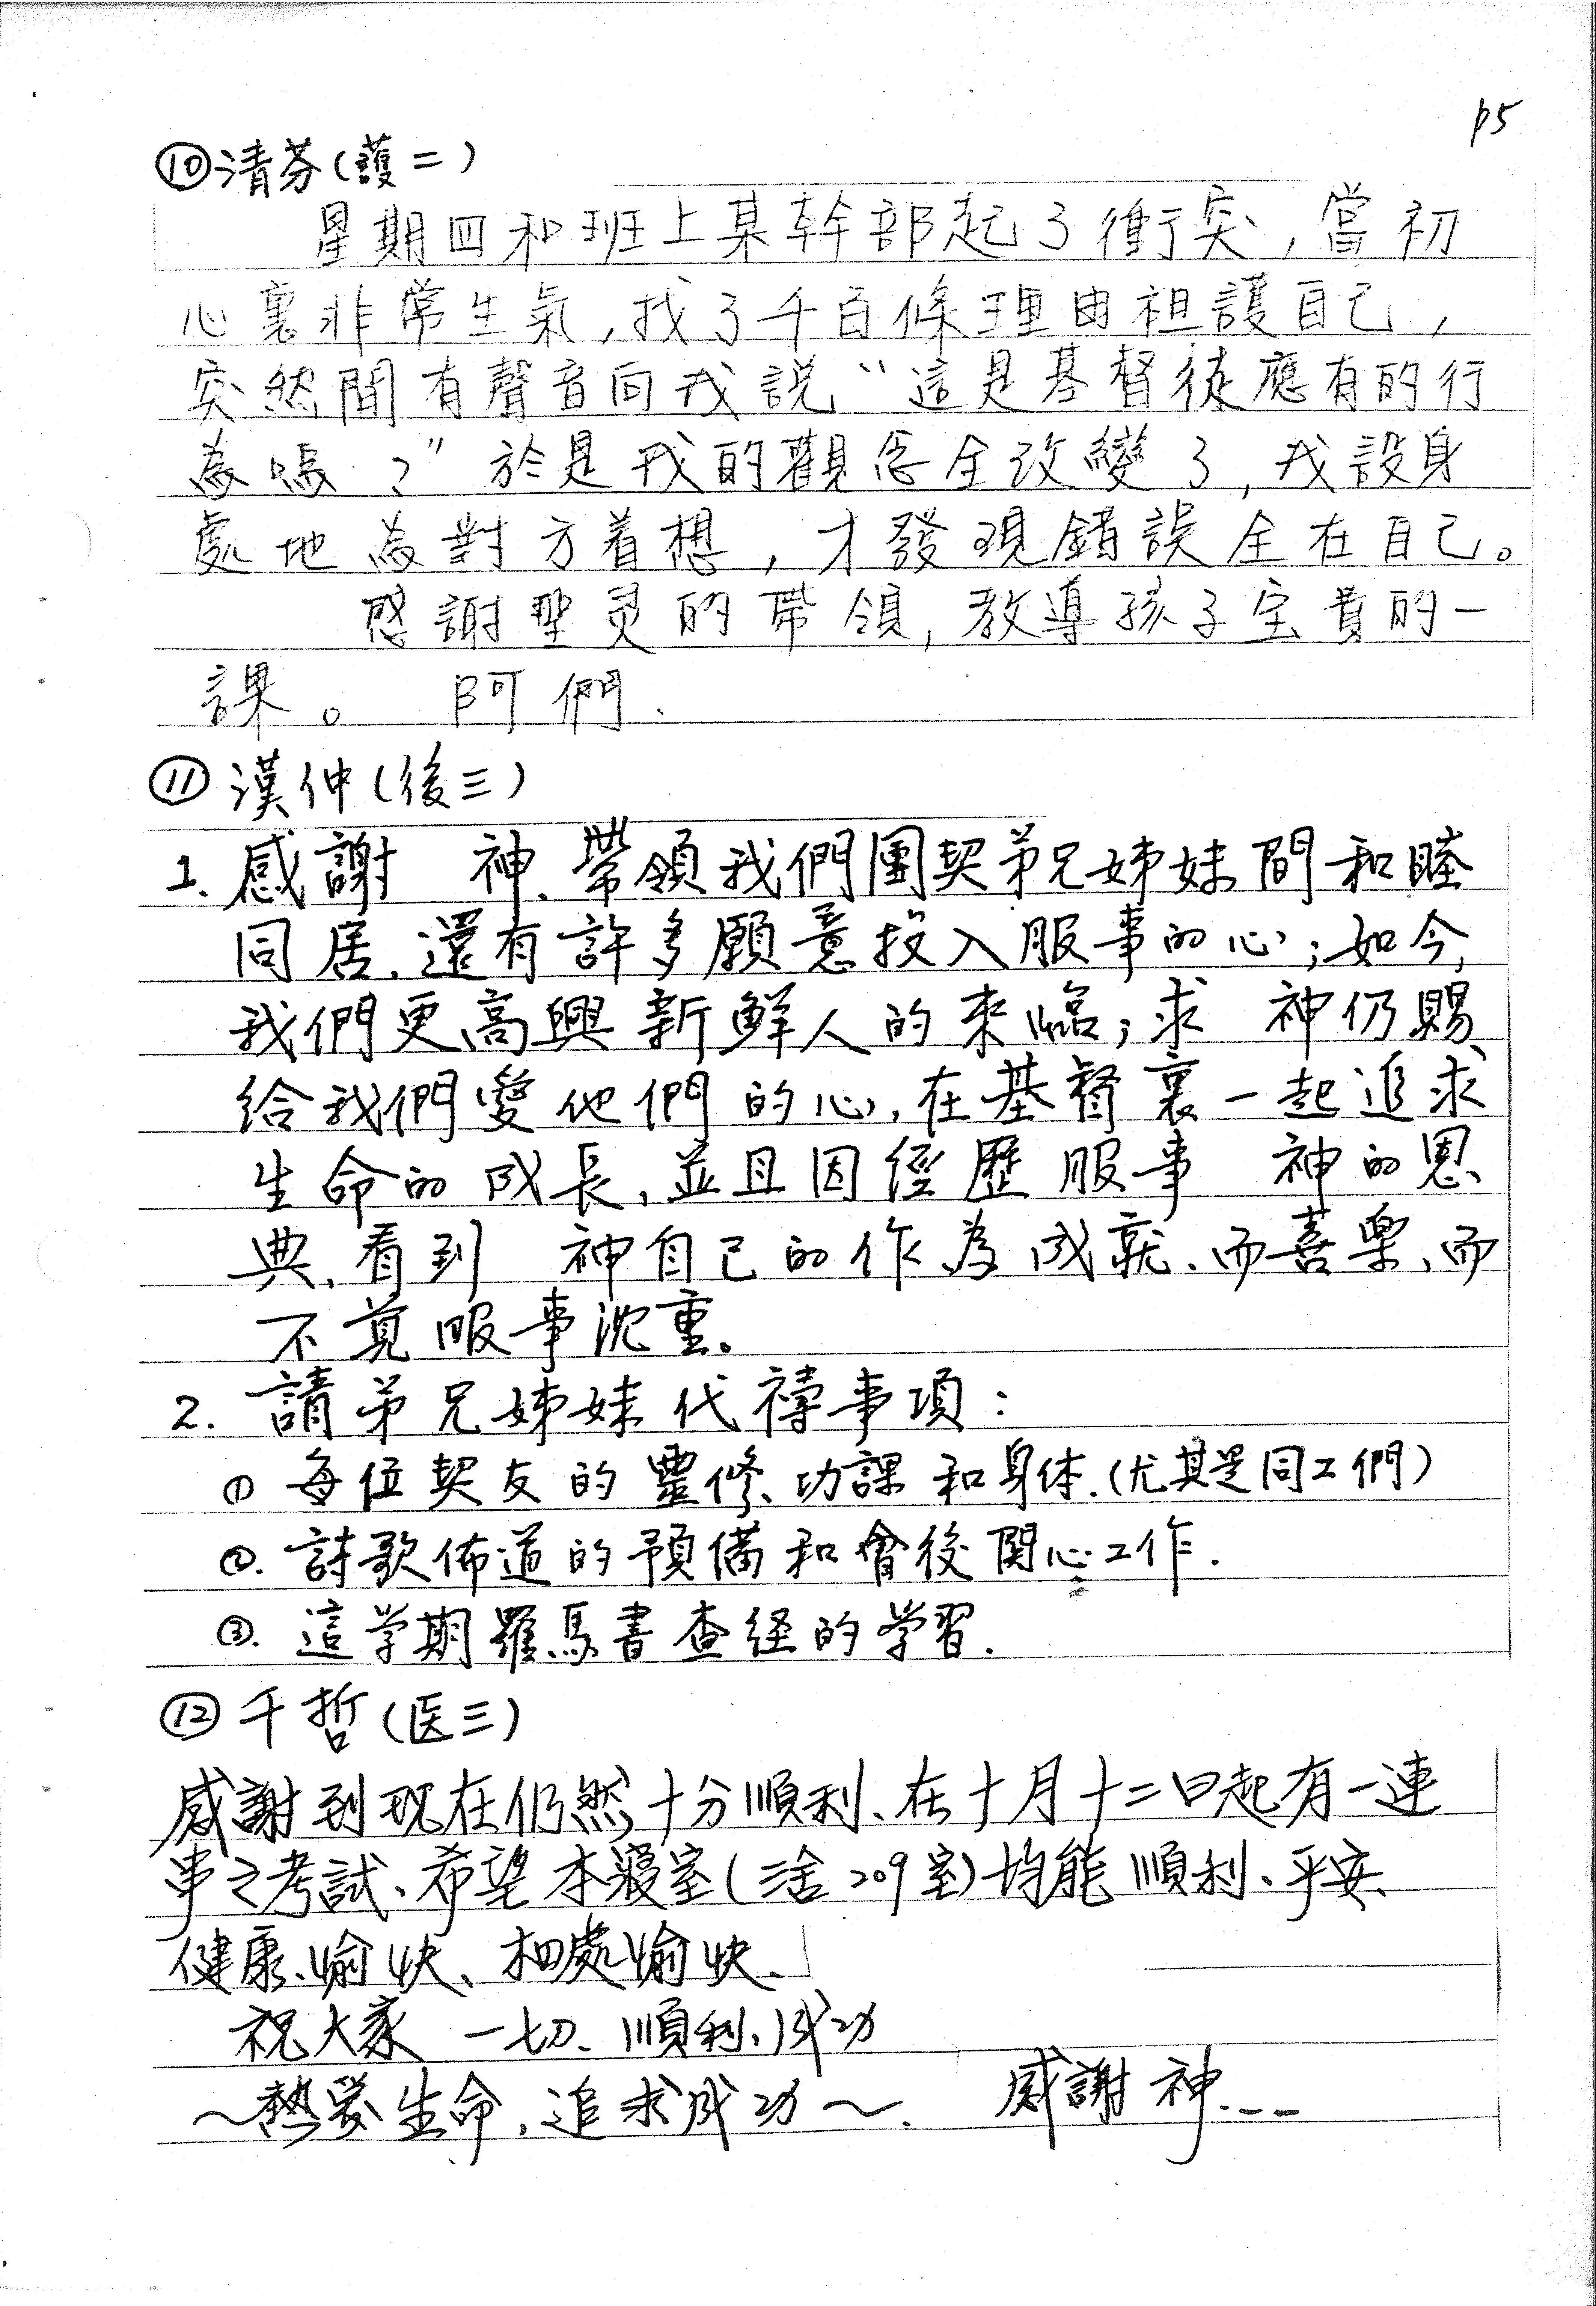 p5
⑩清芬(護二)
星期四和班上某幹部起了衝突,當初
心裏非常生氣,找了千百條理由袒護自己,
突然間有聲音向我說“這是基督徒應有的行
為嗎?”於是我的觀念全改變了,我設身
處地為對方着想,才發現錯誤全在自己。
感謝聖灵的帶領,教導孩子宝貴的一
課。 阿們.
⑪漢仲(後三)
1. 感謝 神、帶領我們團契弟兄姊妹間和睦
同居、還有許多願意投入服事的心;如今,
我們更高興新鮮人的來臨;求 神仍賜
給我們愛他們的心,在基督裏一起追求
生命的成長、並且因經歷服事 神的恩
典、看到 神自己的作為成就、而喜樂、而
不覺服事沈重。
2. 請弟兄姊妹代禱事項:
①每位契友的靈修、功課和身体.(尤其是同工們)
②. 詩歌佈道的預備和會後関心工作.
③. 這学期羅馬書查経的学習.
⑫千哲(医三)
感謝到現在仍然十分順利、在十月十二日起有一連
串之考試、希望本寢室(三舍209室)均能順利、平安、
健康、愉快、相處愉快、
祝大家 一切、順利、成功
~熱愛生命,追求成功~. 感謝神...